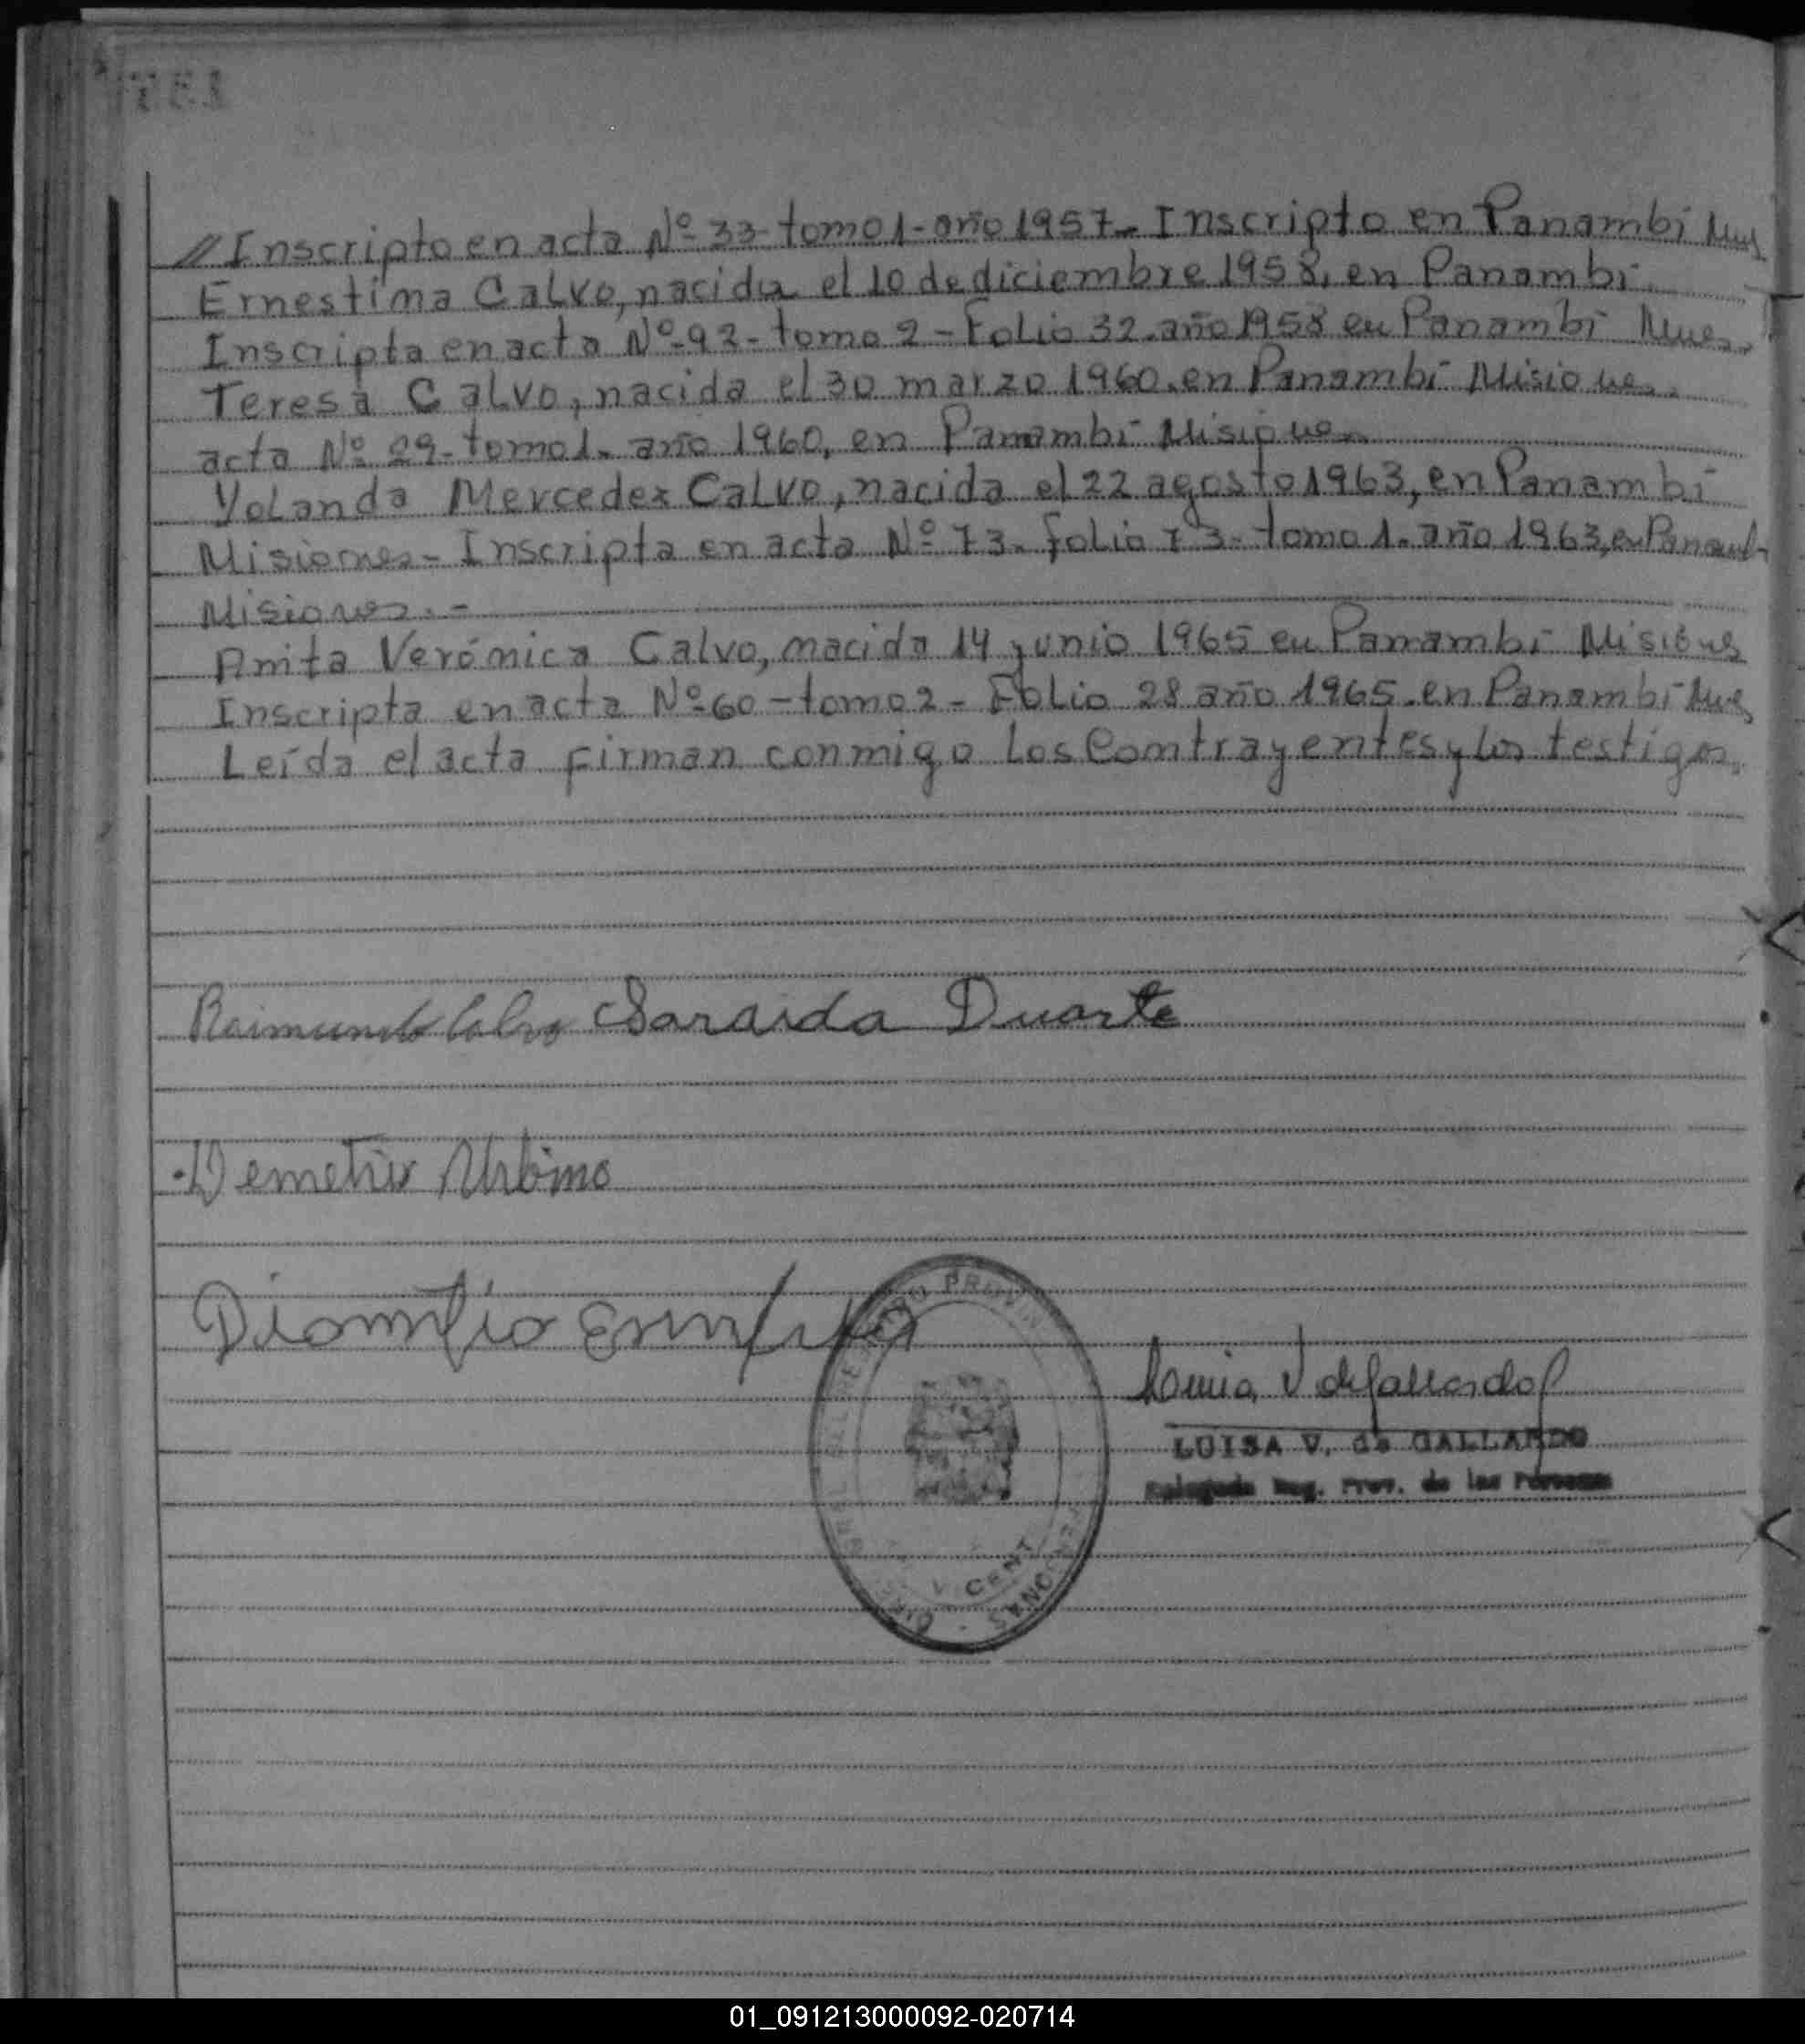 // Inscripto en acta Nº 33- tomo 1- año 1957- Inscripto en Panambí Mns
Ernestina Calvo, nacida el 10 de diciembre 1958, en Panambi.
Inscripta en acta Nº 92- tomo 2- Folio 32. año 1958 en Panambi Mnes.
Teresa Calvo, nacida el 30 marzo 1960. en Panambi Misiones.
acta Nº 29- tomo 1. año 1960, en Panambi Misiones
Yolanda Mercedes Calvo, nacida el 22 agosto 1963, en Panambi
Misiones- Inscripta en acta Nº 73. folio 73- tomo 1. año 1963, en Panambi
Misiones.-
Anita Verónica Calvo, nacida 14 junio 1965 en Panambi Misiones
Inscripta en acta Nº 60- tomo 2- Folio 28 año 1965. en Panambi Mnes
Leída el acta firman conmigo los Contrayentes y los testigos.
Raimundo Calvo Saraida Duarte
Demetrio Urbino
Luisa V de Gallardo
LUISA V. de GALLARDO
Delegada Reg. Prov. de las Personas
01_091213000092-020714